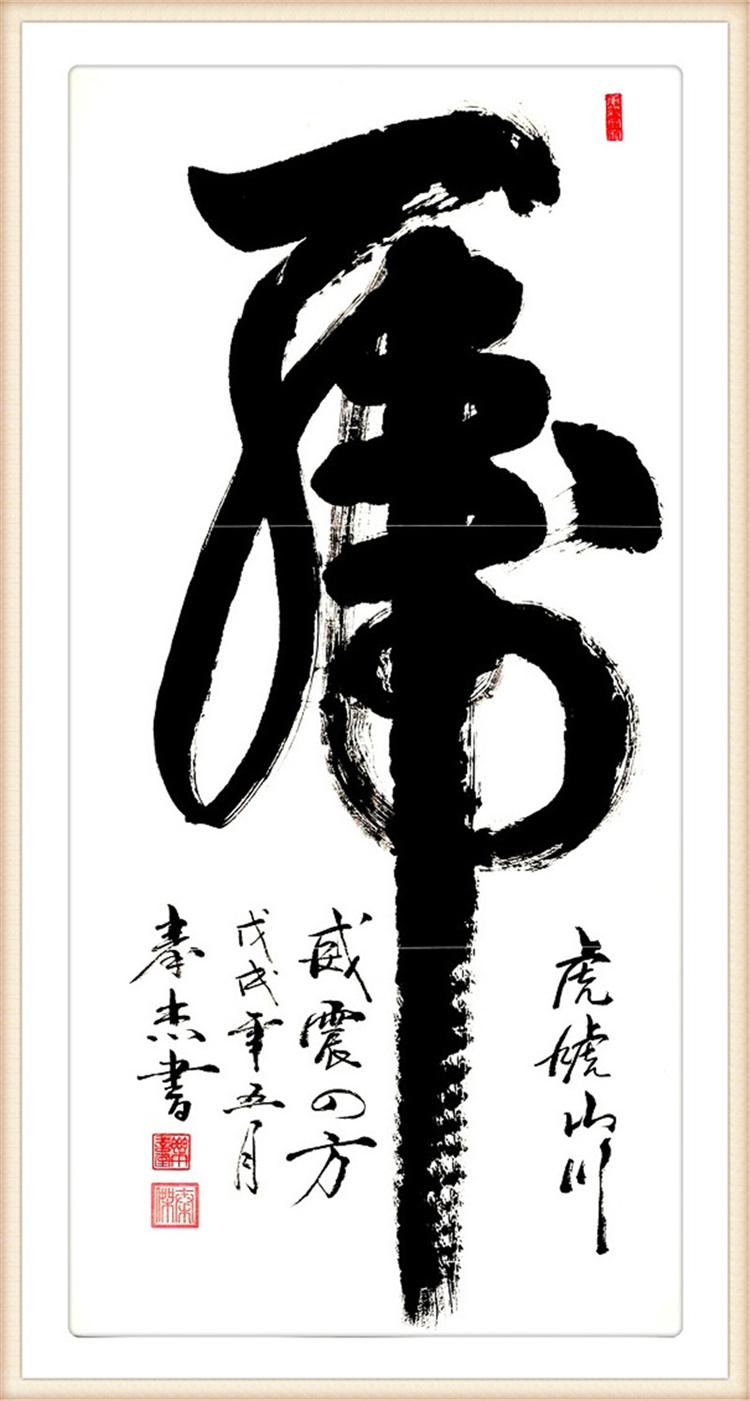 虎
虎虓山川
威震四方
戊戌年五月
秦杰書